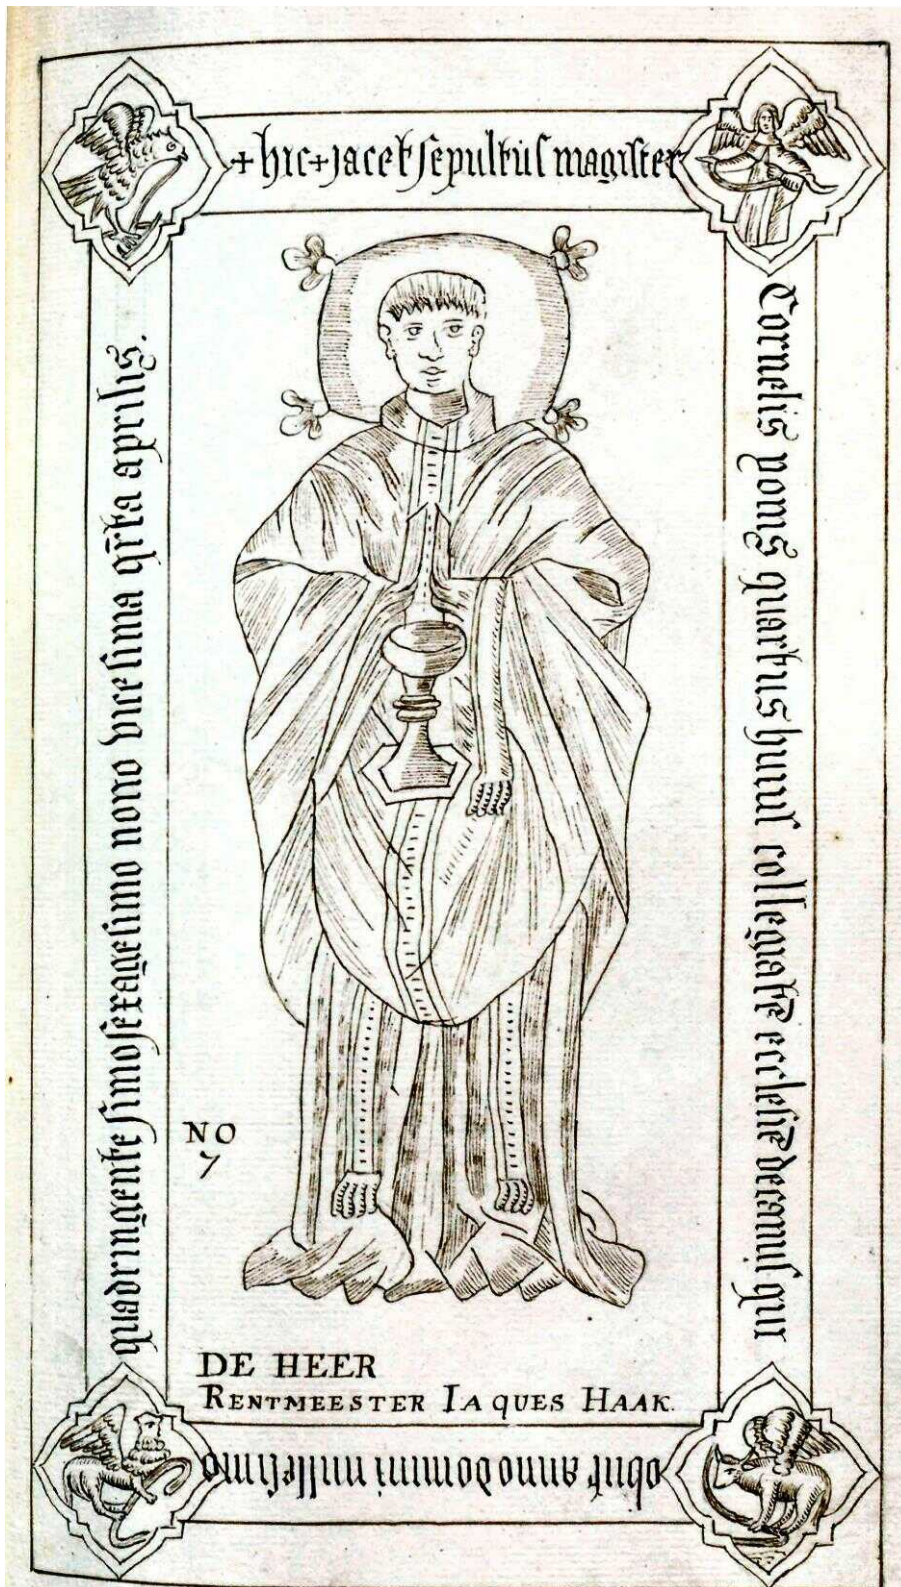 + hic + jacet sepultus magister
Cornelis poms quartus huius collegiate ecclesie decanus qui
obiit anno domini millesimo
quadringentesimo sexagesimo nono vicesima qrta aprilis.
NO
7
DE HEER
RENTMEESTER IAQUES HAAK.